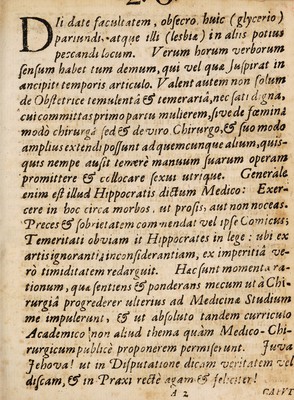 DIi date facultatem, obsecro, huic (glycerio)
pariundi, atque illi (lesbiæ) in aliis potius
peccandi locum. Verum horum verborum
sensum habet tum demum, qui vel quæ suspirat in
ancipiti temporis articulo. Valent autem non solum
de Obstetrice temulentâ & temerariâ, nec sati digna,
cui committas primo partu mulierem, sive de fœminâ
modò chirurgâ sed & de viro Chirurgo, & suo modo
amplius extendi possunt ad quemcunque alium, quis-
quis nempe ausit temerè manuum suarum operam
promittere & collocare sexui utrique. Generale
enim est illud Hippocratis dictum Medico: Exer-
cere in hoc circa morbos, ut prosis, aut non noceas.
Preces & sobrietatem commendat vel ipse Comicus;
Temeritati obviam it Hippocrates in lege: ubi ex
artis ignorantiâ inconsiderantiam, ex imperitiâ ve-
rò timiditatem redarguit. Hæc sunt momenta ra-
tionum, quæ sentiens & ponderans mecum ut à Chi-
rurgiâ progrederer ulterius ad Medicinæ Studium
me impulerunt, & ut absoluto tandem curriculo
Academico non aliud thema quàm Medico-Chi-
rurgicum publicè proponerem permiserunt. Juva
Jehova! ut in Disputatione dicam veritatem vel
discam, & in Praxi rectè agam & feliciter!
A 2